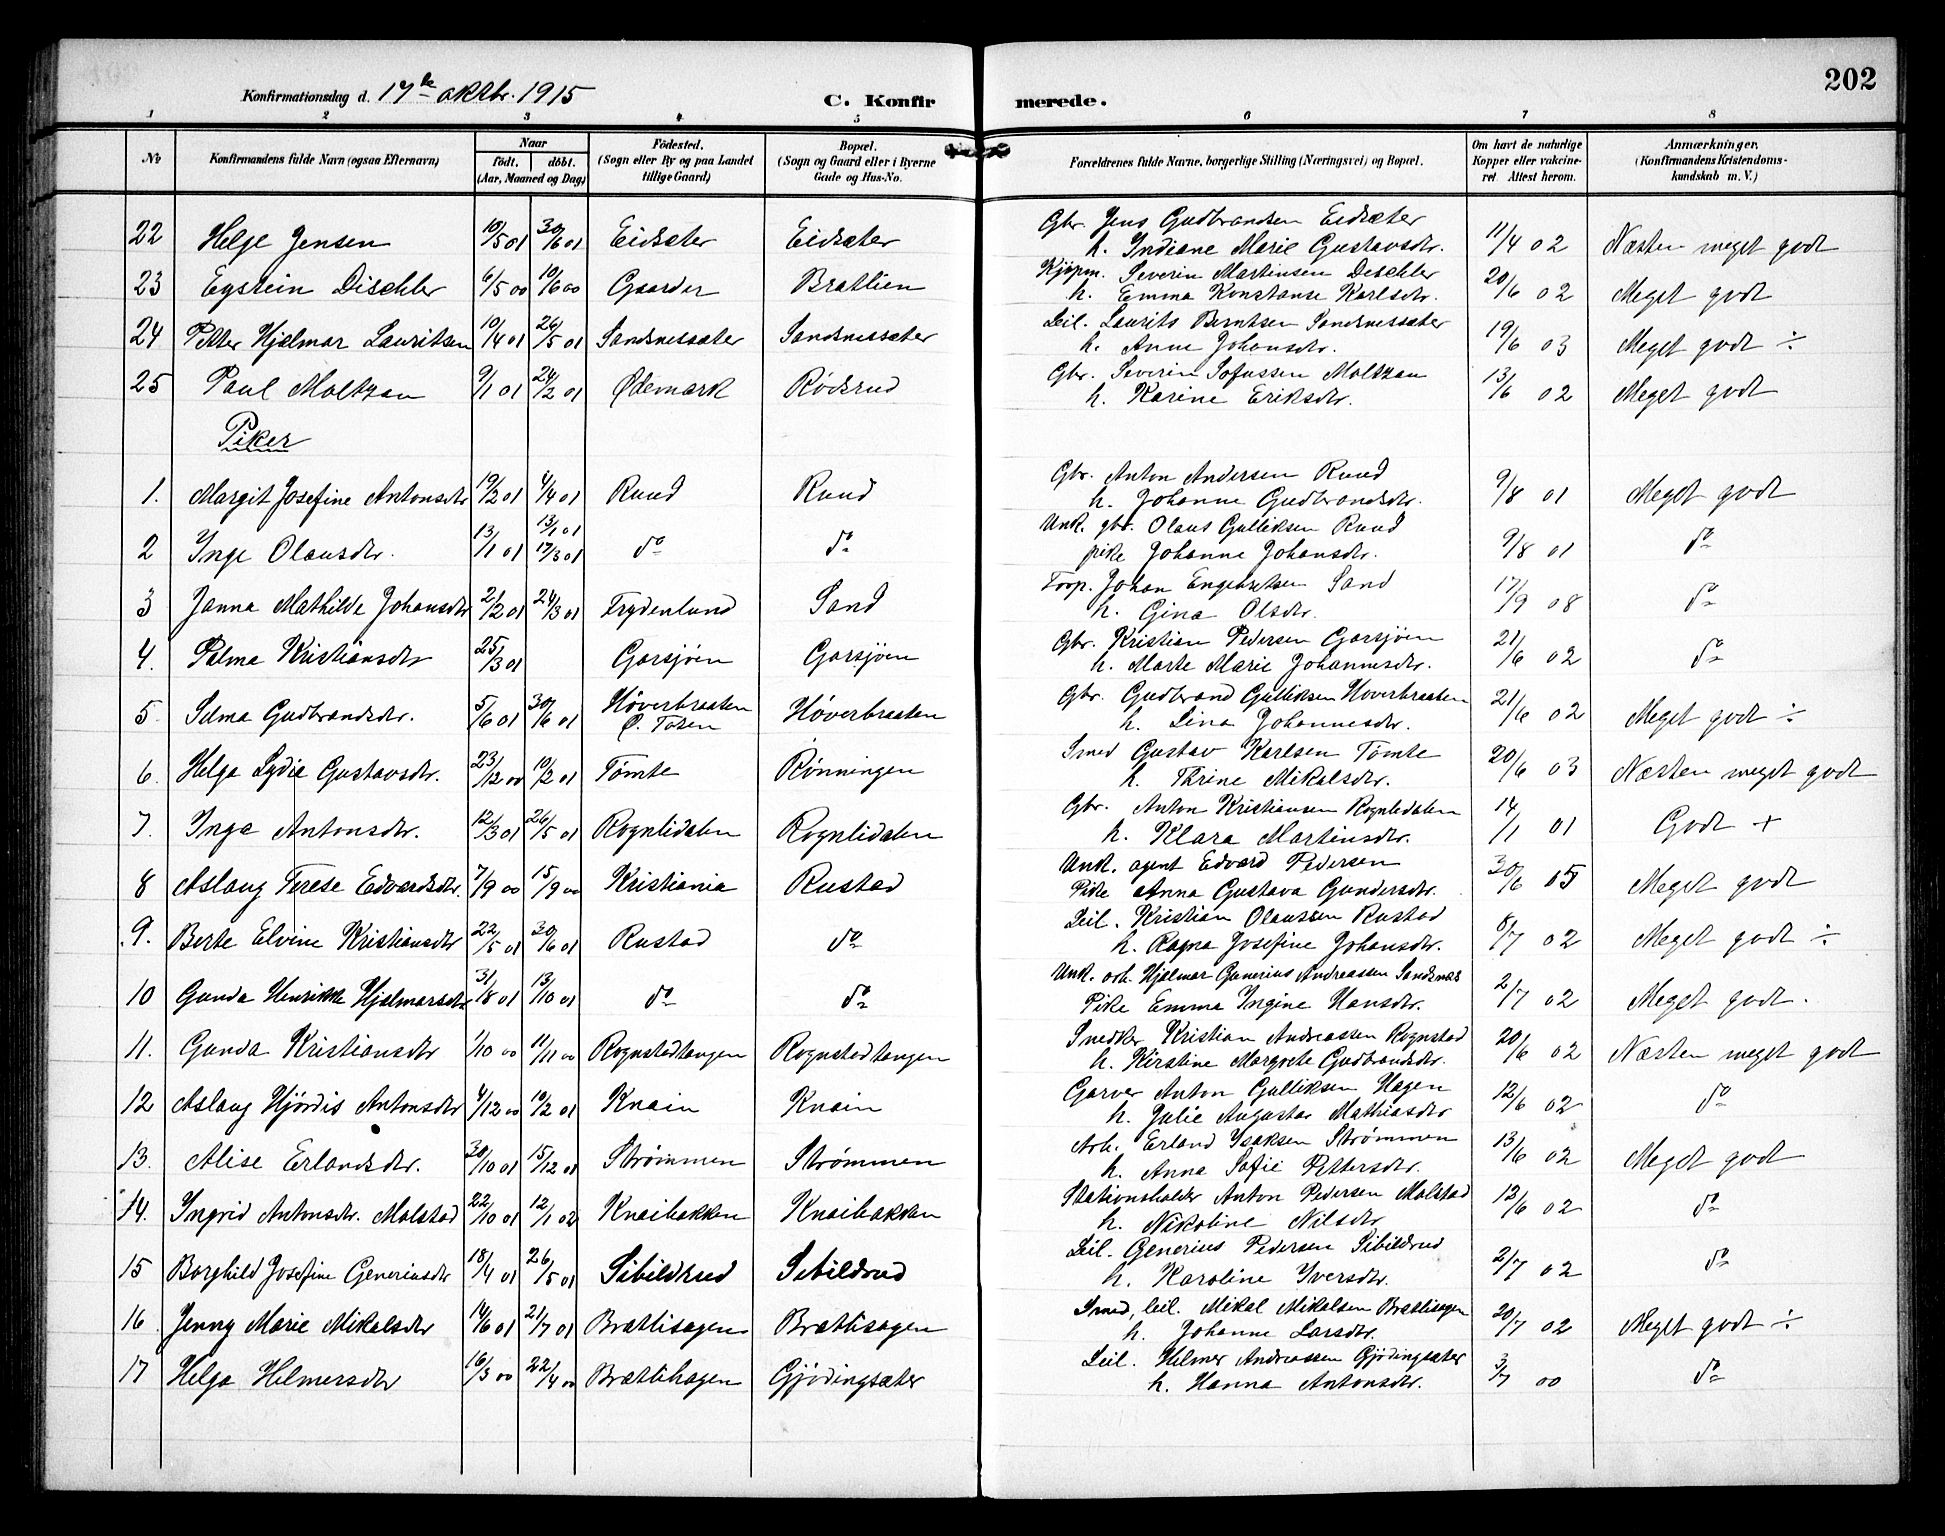 202
Konfirmationsdag d. 17de oktbr. 1915 C. Konfirmerede.
1 2 3 4 5 6 7 8
No Konfirmandens fulde Navn (ogsaa Efternavn) Naar født. døbt. (Aar, Maaned og Dag) Fødested. (Sogn eller By og paa Landet tillige Gaard) Bopæl. (Sogn og Gaard eller i Byerne Gade og Hus-No. Forældrenes fulde Navne, borgerlige Stilling (Næringsvei) og Bopæl. Om havt de naturlige Kopper eller vakcineret Attest herom. Anmærkninger. (Konfirmandens Kristendomskundskab m. V.)
22 Helge Jensen 10/5 01 30/6 01 Eidsæter Eidsæter Gbr. Jens Gudbrandsen Eidsæter 11/4 02 Næsten meget godt
h. Indiane Marie Gustavsdtr.
23 Eystein Dischler 6/5 00 10/6 00 Gaarder Brætlien Kjøpm. Severin Martinsen Dischler 20/6 02 Meget godt
h. Emma Konstanse Karlsdtr.
24 Petter Hjalmar Lauritsen 10/4 01 26/5 01 Sandsnessæter Sandsnessæter Leil. Laurits Berntsen Sandsnessæter 19/6 03 Meget godt ÷
h. Anne Johansdtr.
25 Paul Moltzau 9/1 01 24/2 01 Ødemark Rødsrud Gbr. Severin Sofussen Moltzau 13/6 02 Meget godt
h. Karine Eriksdtr.
Piker
1. Margit Josefine Antonsdtr 19/2 01 4/4 01 Ruud Ruud Gbr. Anton Andersen Ruud 9/8 01 Meget godt
h. Johanne Gudbrandsdtr.
2 Inge Olausdtr. 13/1 01 13/1 01 17/3 01 do do Unk. gbr. Olaus Gulliksen Ruud 9/8 01 do
pike Johanne Johansdtr.
3 Janna Mathilde Johansdtr 21/2 01 24/3 01 Frydenlund Sand Torp. Johan Engebretsen Sand 17/9 08 do
h. Gina Olsdtr.
4. Palma Kristiansdtr 25/3 01 Garsjøen Garsjøen Gbr. Kristian Pedersen Garsjøen 21/6 02 do
h. Marte Marie Johannesdtr.
5. Selma Gudbrandsdtr. 5/6 01 30/6 01 Høverbraaten Ø. Toten Høverbraaten Gbr. Gudbrand Gulliksen Høverbraaten 21/6 02 Meget godt ÷
h. Lina Johannesdtr.
6. Helga Lydia Gustavsdtr. 23/12 00 10/2 01 Tømte Rønningen Smed Gustav Karlsen Tømte 20/6 03 Næsten meget godt
h. Thrine Mikalsdtr.
7. Inga Antonsdtr. 12/3 01 26/5 01 Rognlidalen Rognlidalen Gbr. Anton Kristiansen Rognledalen 14/1 01 Godt +
h. Klara Martinsdtr.
8 Aslaug Terese Edvardsdtr. 7/9 00 15/9 00 Kristiania Rustad Unk. agent Edvard Pedersen 30/6 05 Meget godt
Pike Anna Gustava Gundersdtr.
9. Berte Elvine Kristiansdtr 22/5 01 30/6 01 Rustad do Leil. Kristian Olaussen Rustad 8/7 02 Meget godt ÷
h. Ragna Josefine Johansdtr.
10 Gunda Henrikke Hjalmarsdtr 31/8 01 13/10 01 do do Unk. arb. Hjalmar Gunerius Andreassen Sandsnæs 2/7 02 Meget godt.
Pike Emma Ingine Hansdtr.
11. Gunda Kristiansdtr 1/10 00 11/11 00 Rognstadtangen Rognstadtangen Snedker Kristian Andreassen Rognstad 20/6 02 Næsten meget godt
h. Kirstine Margrete Gudbrandsdtr.
12 Aslaug Hjördis Antonsdtr 4/12 00 10/2 01 Knain Knain Garver Anton Gulliksen Hagen 12/6 02 do
h. Julie Augusta Mathiasdtr
13. Alise Erlandsdtr. 20/10 01 15/12 01 Strømmen Strømmen Arb. Erland Isaksen Strømmen 13/6 02 Meget godt
h. Anna Sofie Pettersdtr.
14. Ingrid Antonsdtr. Molstad 22/10 01 12/1 02 Knaibakken Knaibakken Stationsholder Anton Pedersen Molstad 12/6 02 do
h. Nikoline Nilsdtr
15 Borghild Josefine Generiusdtr 18/4 01 26/5 01 Sibildsrud Sibildrud Leil. Generius Pedersen Sibildrud 2/7 02 do
h. Karoline Iversdtr.
16. Jenny Marie Mikalsdtr 14/6 01 21/7 01 Brættisagen Brættisagen Smed, leil. Mikal Mikalsen Brættisagen 20/7 02 Meget godt ÷
h. Johanne Larsdtr.
17 Helga Helmersdtr 16/3 00 22/4 00 Brættihagen Gjødingsæter Leil. Helmer Andreassen Gjødingsæter 3/7 00 do
h. Hanna Antonsdtr.